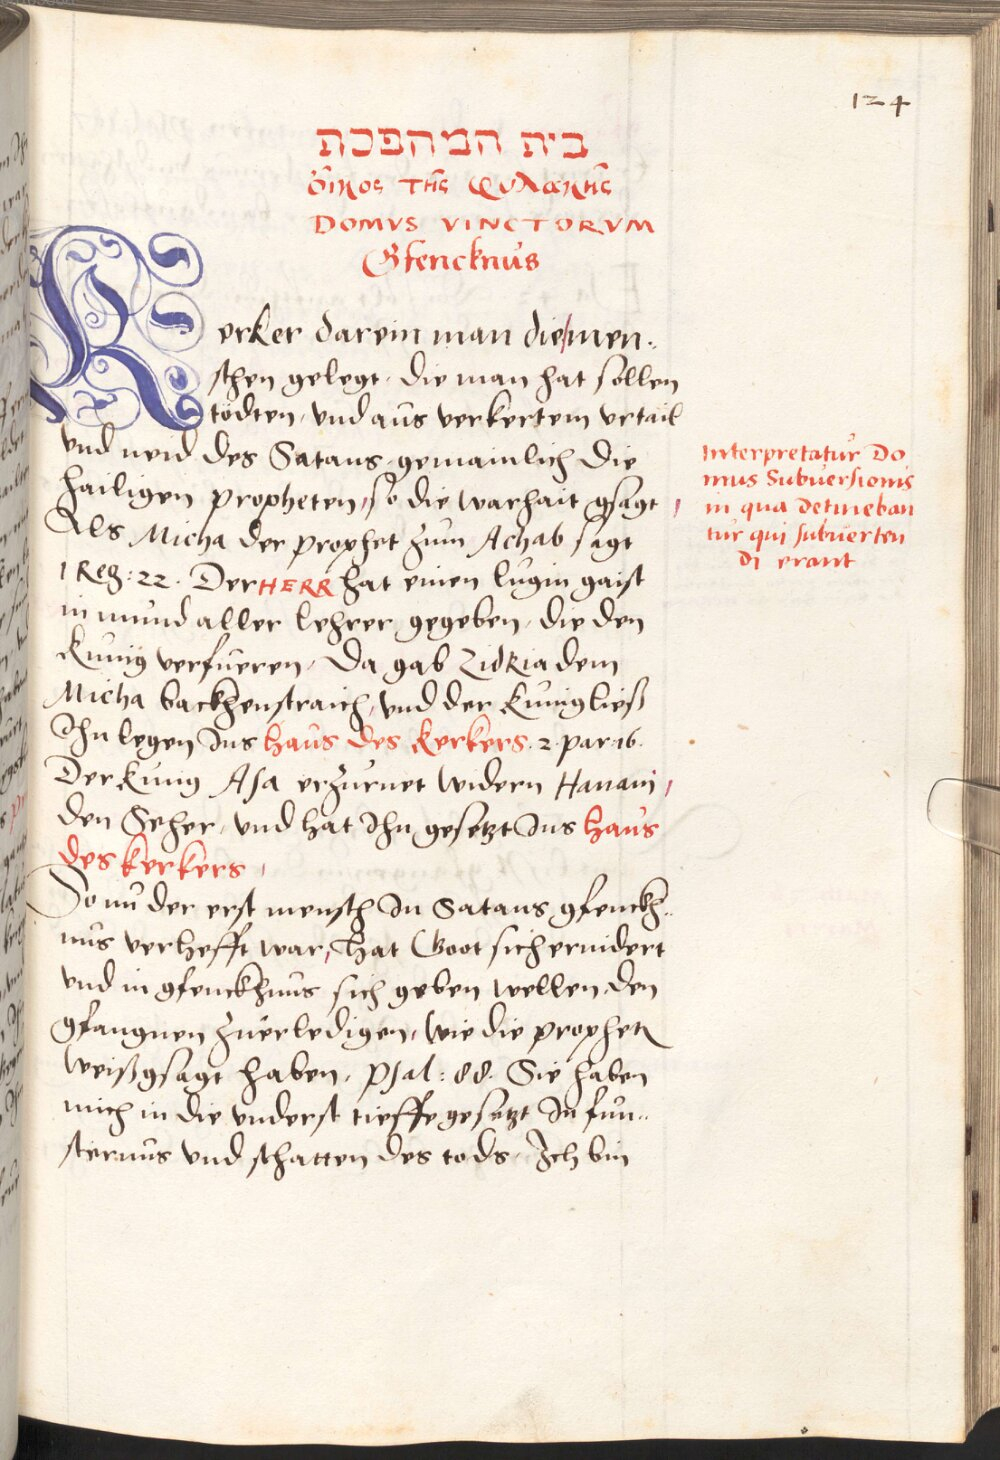 124
בית המהפכת
οἶκος τῆς φυλακῆς
DOMVS VINCTORVM
Gfencknus
Kerker darein man die men„
schen gelegt, die man hat sollen
tödten, vnd aus verkertem vrtail
vnd neid des Satans, gemainlich die
hailigen propheten, so die warhait gsagt,
Als Micha der prophet zum Achab sagt
1 Reg: 22. Der HERR hat einen lugin gaist
in mund aller lehrer gegeben, die den
Kunig verfueren, Da gab Zidkia dem
Micha backhenstraich, vnd der Kunig ließ
Ihn legen Ins haus des kerkers. 2. par. 16.
Der Kunig Asa erzurnet widern Hanani,
den Seher, vnd hat Ihn gesetzt Ins haus
des kerkers,
So nu der erst mensch In Satans gfenckh„
nus verhefft war, hat Goot sich ernidert
vnd in gfenckhnus sich geben wellen, den
gfangnen zu erledigen, wie die prophetn
weißgsagt haben, psal: 88. Sie haben
mich in die vnderst tieffe gesetzt In fun„
sternus vnd schatten des tods, Ich bin
Interpretatur Do
mus Subuersionis
in qua detineban
tur qui subuerten
di erant